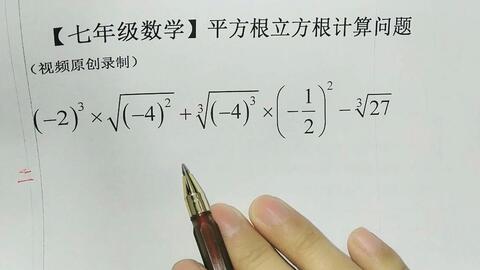 【七年级数学】平方根立方根计算问题
（视频原创录制）
(-2)³×√(-4)²+∛(-4)³×(-1/2)²-∛27